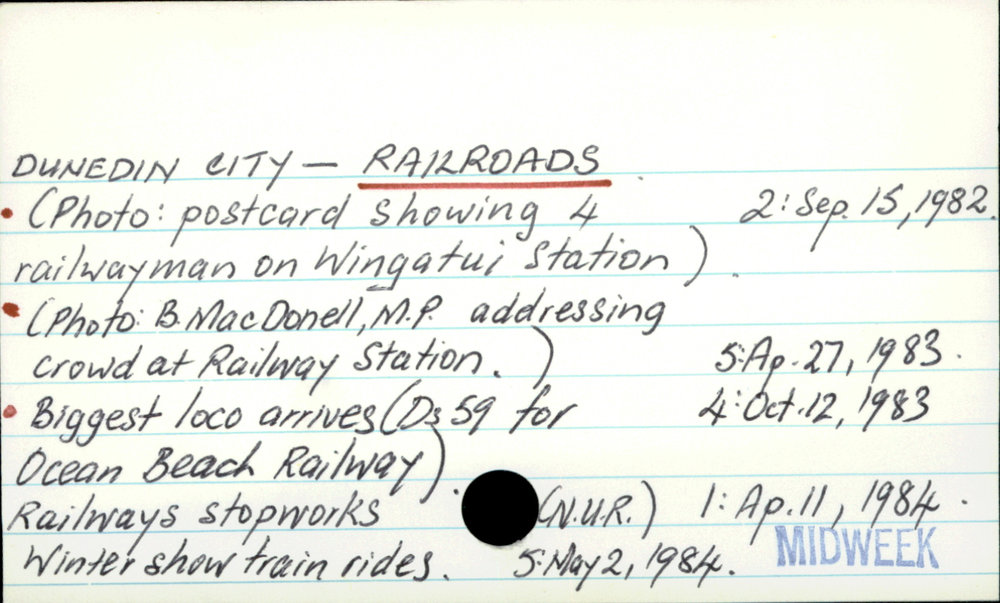 DUNEDIN CITY — RAILROADS
• (Photo: postcard showing 4 2: Sep. 15, 1982.
railwayman on Wingatui Station).
• (Photo: B. MacDonell, M.P. addressing
crowd at Railway Station.) 5: Ap. 27, 1983.
• Biggest loco arrives (Ds 59 for 4: Oct. 12, 1983
Ocean Beach Railway).
Railways stopworks (N.U.R.) 1: Ap. 11, 1984.
Winter show train rides. 5: May 2, 1984.
MIDWEEK